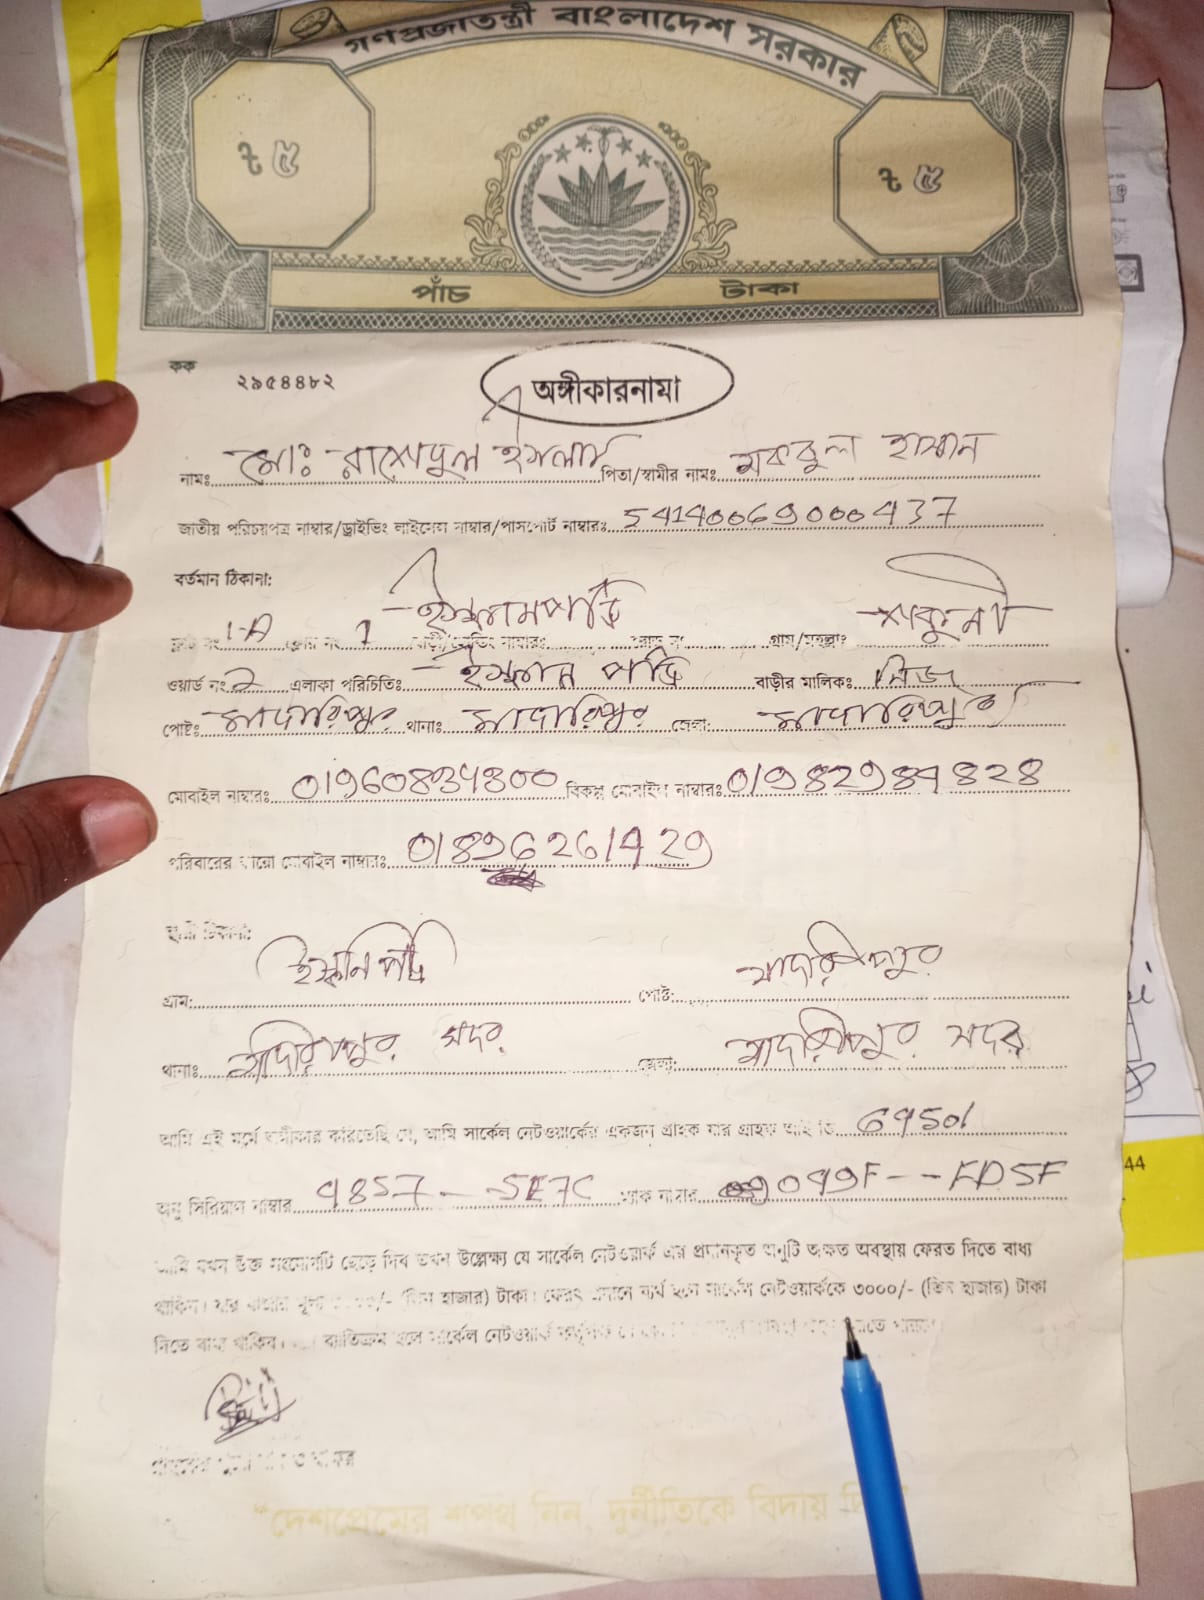 গণপ্রজাতন্ত্রী বাংলাদেশ সরকার
৳ ৫
৳ ৫
পাঁচ টাকা
কক
২৯৫৪৪৮২
অঙ্গীকারনামা
নামঃ মোঃ রাশেদুল ইসলাম পিতা/স্বামীর নামঃ মকবুল হাসান
জাতীয় পরিচয়পত্র নাম্বার/ড্রাইভিং লাইসেন্স নাম্বার/পাসপোর্ট নাম্বারঃ 54140069000437
বর্তমান ঠিকানা:
1-A 1 গ্রাম/মহল্লাঃ শকুনী
ওয়ার্ড নং 2 এলাকা পরিচিতিঃ বাড়ীর মালিকঃ নিজ
পোষ্টঃ মাদারিপুর থানাঃ মাদারিপুর জেলা: মাদারিপুর
মোবাইল নাম্বারঃ 01960834800 বিকল্প মোবাইল নাম্বারঃ 01982984828
পরিবারের মোবাইল নাম্বারঃ 01896261429
স্থায়ী ঠিকানা:
গ্রাম: পোষ্ট: মাদারীপুর
থানাঃ মাদারিপুর সদর জেলা: মাদারীপুর সদর
আমি এই মর্মে অঙ্গীকার করিতেছি যে, আমি সার্কেল নেটওয়ার্কের একজন গ্রাহক যার গ্রাহক আই ডি 69501
অনু সিরিয়াল নাম্বার 9857--5E7C ম্যাক নাম্বার 9049F--FD5F
আমি যখন উক্ত সংযোগটি ছেড়ে দিব তখন উল্লেক্ষ্য যে সার্কেল নেটওয়ার্ক এর প্রদানকৃত অনুটি অক্ষত অবস্থায় ফেরত দিতে বাধ্য
থাকিব। যার বাজার মূল্য (তিন হাজার) টাকা। ফেরৎ প্রদানে ব্যর্থ হলে সার্কেল নেটওয়ার্ককে ৩০০০/- (তিন হাজার) টাকা
দিতে বাধ্য থাকিব। ব্যতিক্রম হলে সার্কেল নেটওয়ার্ক কর্তৃপক্ষ
"দেশপ্রেমের শপথ নিন, দুর্নীতিকে বিদায়
44